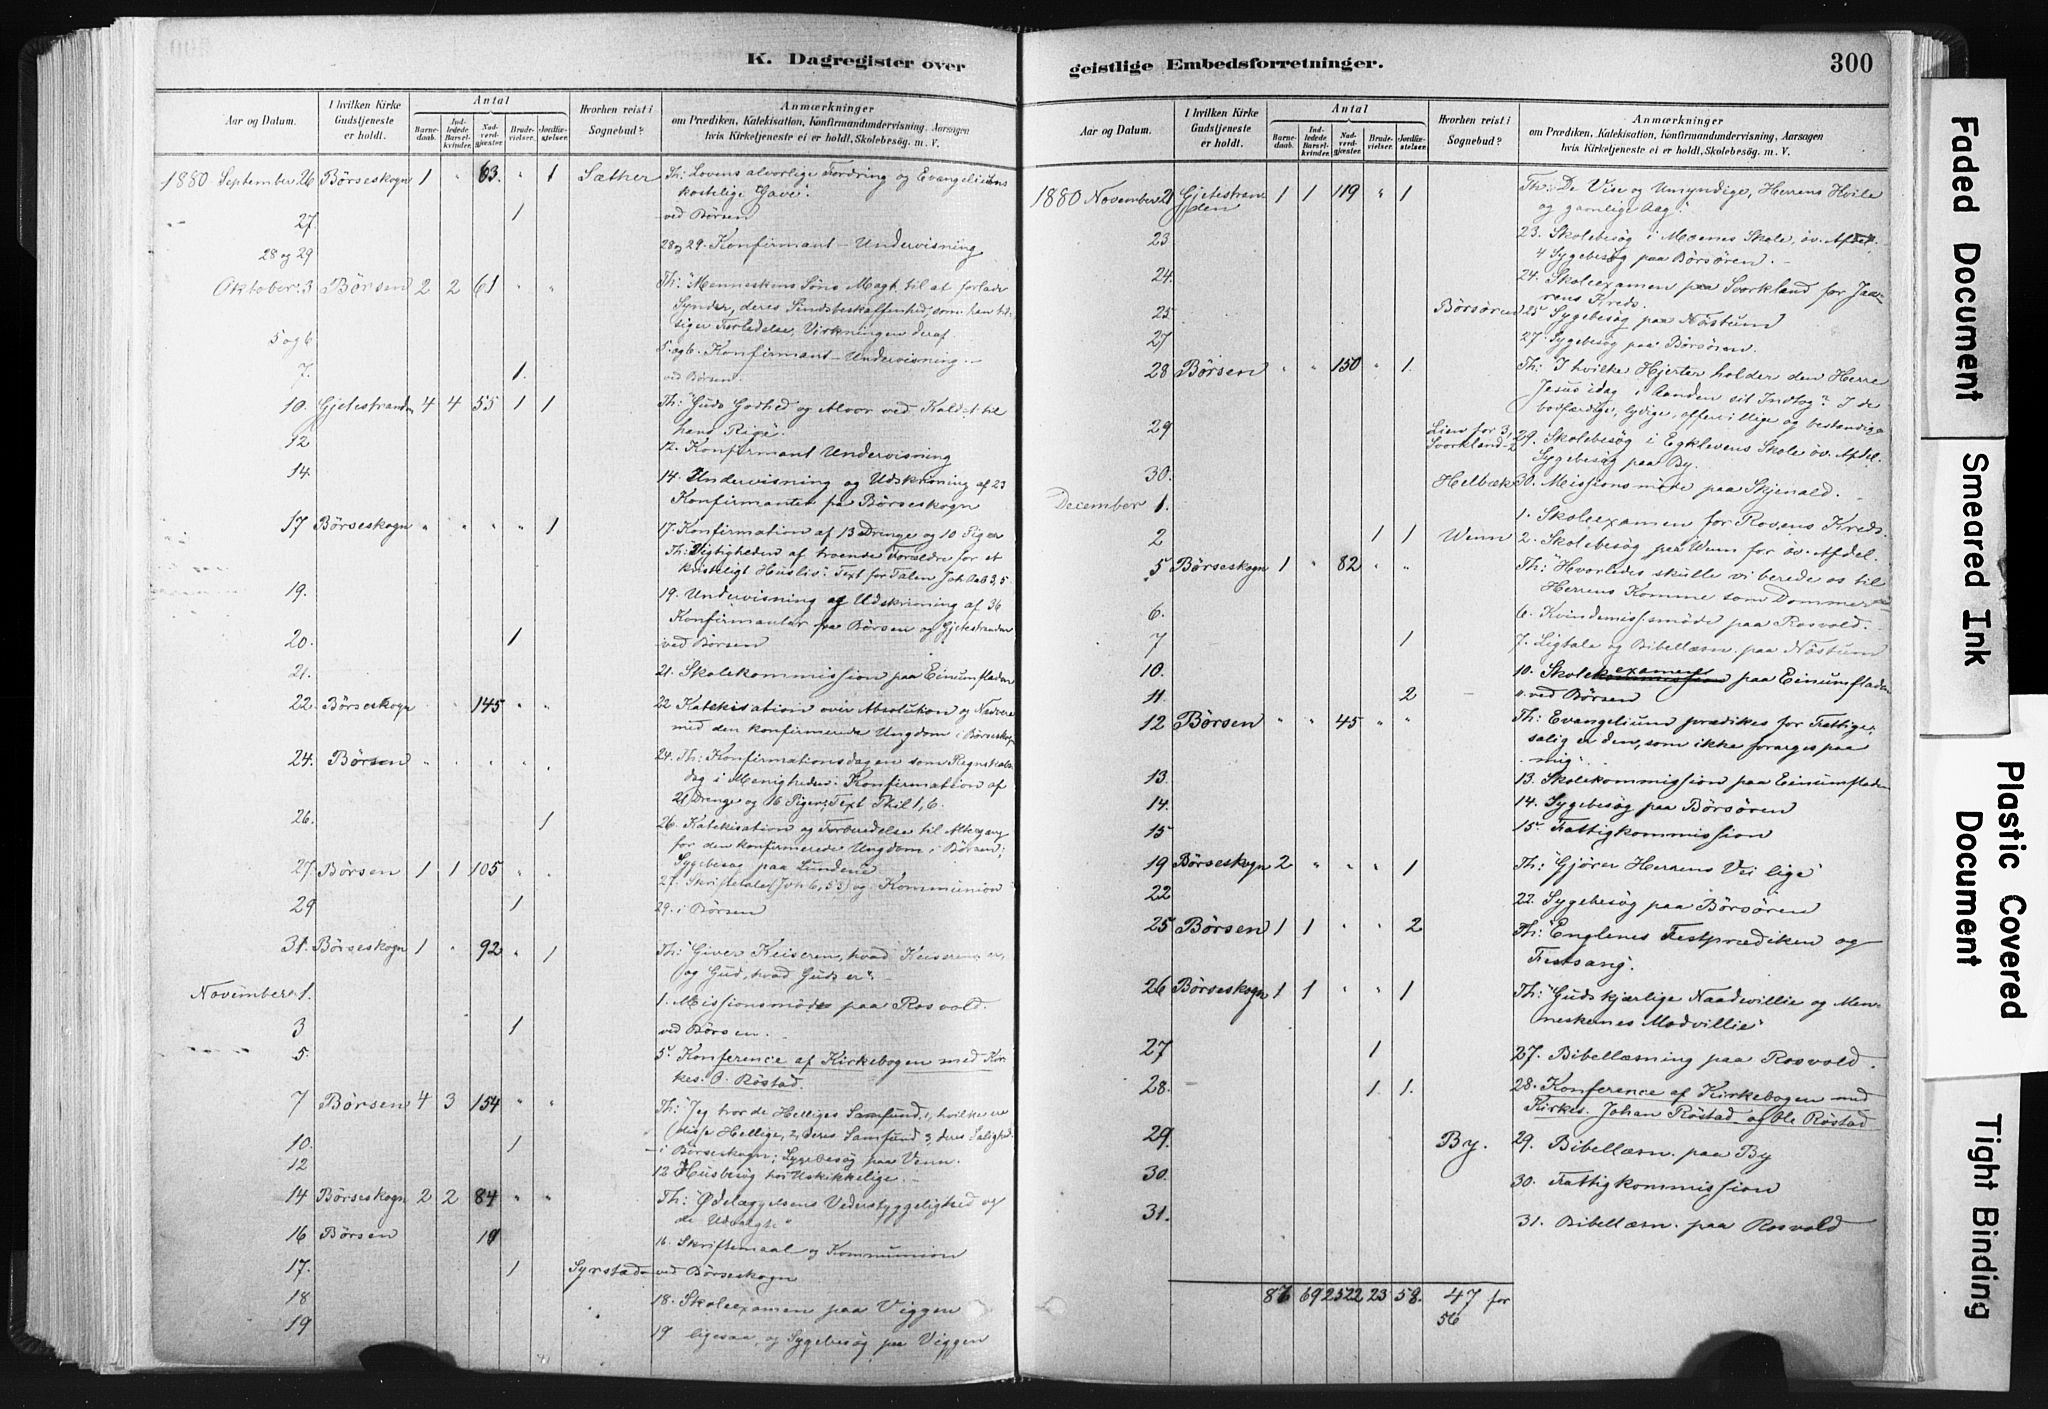 K. Dagregister over
Aar og Datum.
I hvilken Kirke Gudstjeneste er holdt.
Antal
Barnedaab.
Indledede Barselkvinder.
Nadverdgjæster.
Brudevielser.
Jordfæstelser.
Hvorhen reist i Sognebud?
Anmærkninger
om Prædiken, Katekisation, Konfirmandundervisning, Aarsagen
hvis Kirketjeneste ei er holdt, Skolebesøg. m. V.
1880 September 26 Børseskogn 1 " 63. " 1 Sæther Th: Lovens alvorlige Fordring og Evangeliums
kostelige Gave".
27. 1 ved Børsen
28 og 29 28 og 29. Konfirmant-Undervisning
Oktober 3 Børsen 2 2 61 " " Th: "Menneskens Søns Magt til at forlade
Synder, deres Sindsbeskaffenhed, som han til-
siger Forladelse, Virkningen deraf.
5 og 6 5. og 6. Konfirmant-Undervisning.
7. 1. ved Børsen.
10. Gjetestranden 4 4 55 1 1 Th: "Guds Godhed og Alvor ved Kaldet til
hans Rige".
12 12. Konfirmant Undervisning
14. 14. Undervisning og Udskrivning af 23
Konfirmanter fra Børseskogn
17 Børseskogn " " " " 1 17. Konfirmation af 13 Drenge og 10 Piger
Th: Vigtigheden af troende Forældre for et
kristeligt Husliv". Text for Talen Joh. Aab 3,5
19. 19. Undervisning og Udskrivning af 36
Konfirmanter fra Børsen og Gjetestranden
20. 1 ved Børsen
21. 21. Skolekommission paa Einumfladen
22. Børseskogn " " 145 " " 22 Katekisation over Absolution og Nadvere
med den konfirmerede Ungdom i Børseskogn
24. Børsen " " " " " 24. Th: Konfirmationsdagen som Regnskabs-
dag i Menigheden. Konfirmation af
21 Drenge og 16 Piger. Text Phil 1, 6.
26. 1 26. Katekisation og Forberedelse til Altergang
for den konfirmerede Ungdom i Børsen;
Sygebesøg paa Lundene
27. Børsen 1 1 105 " " 27. Skriftetale (Joh 6, 53) og Kommunion
29 1 29. i Børsen
31. Børseskogn 1 " 92 " 1 Th: "Giver Keiseren, hvad Keiserens er,
og Gud, hvad Guds er".
November 1. 1. Missionsmøde paa Rosvold.
3 1 ved Børsen.
5. 5. Konference af Kirkebogen med Kir-
kes. O. Røstad.
7 Børsen 4 3 154 " " Th: "Jeg tror de Helliges Samfund, 1, hvilke ere
disse Hellige, 2, deres Samfund 3, deres Salighed.
10. 1 i Børseskogn; Sygebesøg paa Venn.
12 12 Husbesøg hos Uskikkelige.
14 Børseskogn 2 2 84 " " Th: "Ødelæggelsens Vederstyggelighed og
de Udvalgte"
16 Børsen 19 16. Skriftemaal og Kommunion
17. 1 Syrstad ved Børseskogn
18 18. Skoleexamen paa Viggen
19 19 ligesaa, og Sygebesøg paa Viggen
geistlige Embedsforretninger.
300
Aar og Datum.
I hvilken Kirke Gudstjeneste er holdt.
Antal
Barnedaab.
Indledede Barselkvinder.
Nadverdgjæster.
Brudevielser.
Jordfæstelser.
Hvorhen reist i Sognebud?
Anmærkninger
om Prædiken, Katekisation, Konfirmandundervisning, Aarsagen
hvis Kirketjeneste ei er holdt, Skolebesøg. m. V.
1880 November 21 Gjetestranden 1 1 119 " 1 Th: De Vise og Umyndige, Herrens Hvile
og gavnlige Aag.
23 23. Skolebesøg i Moenes Skole, øv. Afdel.
4 Sygebesøg paa Børsøren.
24. 24. Skoleexamen paa Svorkland for Jaa-
rens Kreds.
25 Børsøren 25 Sygebesøg paa Nøstum
27 27. Sygebesøg paa Børsøren.
28 Børsen " " 150 " 1. Th: I hvilke Hjerter holder den Herre
Jesus idag i Aanden sit Indtog? I de
bodfærdige, lydige, offervillige og bestandige
29 Lien for 3, Svorkland 2 29. Skolebesøg i Egklevens Skole øv. Afdel.
Sygebesøg paa By.
30. Helbæk 30. Missionsmøde paa Skjenald.
December 1. 1. Skoleexamen for Rovens Kreds
2 1 1 Wenn 2. Skolebesøg paa Wenn for øv. Afdel.
5 Børseskogn 1 " 82 " " Th: "Hvorledes skulle vi berede os til
Herrens Komme som Dommer
6. 6. Kvindemissionsmøde paa Rosvold.
7 1 7. Ligtale og Bibellæsn. paa Nøstum
10. 10. Skoleexamen paa Einumfladen
11. 2 11. ved Børsen
12 Børsen " " 45 " " Th: Evangelium prædikes for Fattige;
salig er den, som ikke forarges paa
mig".
13. 13. Skolekommission paa Einumfladen
14. 14. Sygebesøg paa Børsøren
15 15. Fattigkommission
19 Børseskogn 2 " " " 1 Th: "Gjører Herrens Vei lige"
22 22. Sygebesøg paa Børsøren
25 Børsen 1 1 " " 2 Th: "Englenes Festprædiken og
Festsang.
26 Børseskogn 1 1 " " 1 Th: "Guds kjærlige Naadevillie og Men-
neskenes Modvillie"
27 1 27. Bibellæsning paa Rosvold.
28. 1 1. 28. Konference af Kirkebogen med
Kirkes. Johan Røstad og Ole Røstad
29. By. 29. Bibellæsn. paa By
30. 30. Fattigkommission
31. 31. Bibellæsn. paa Rosvold
86 69 2522 23 58. 47 for
56
Faded Document
Smeared Ink
Plastic Covered
Document
Tight Binding